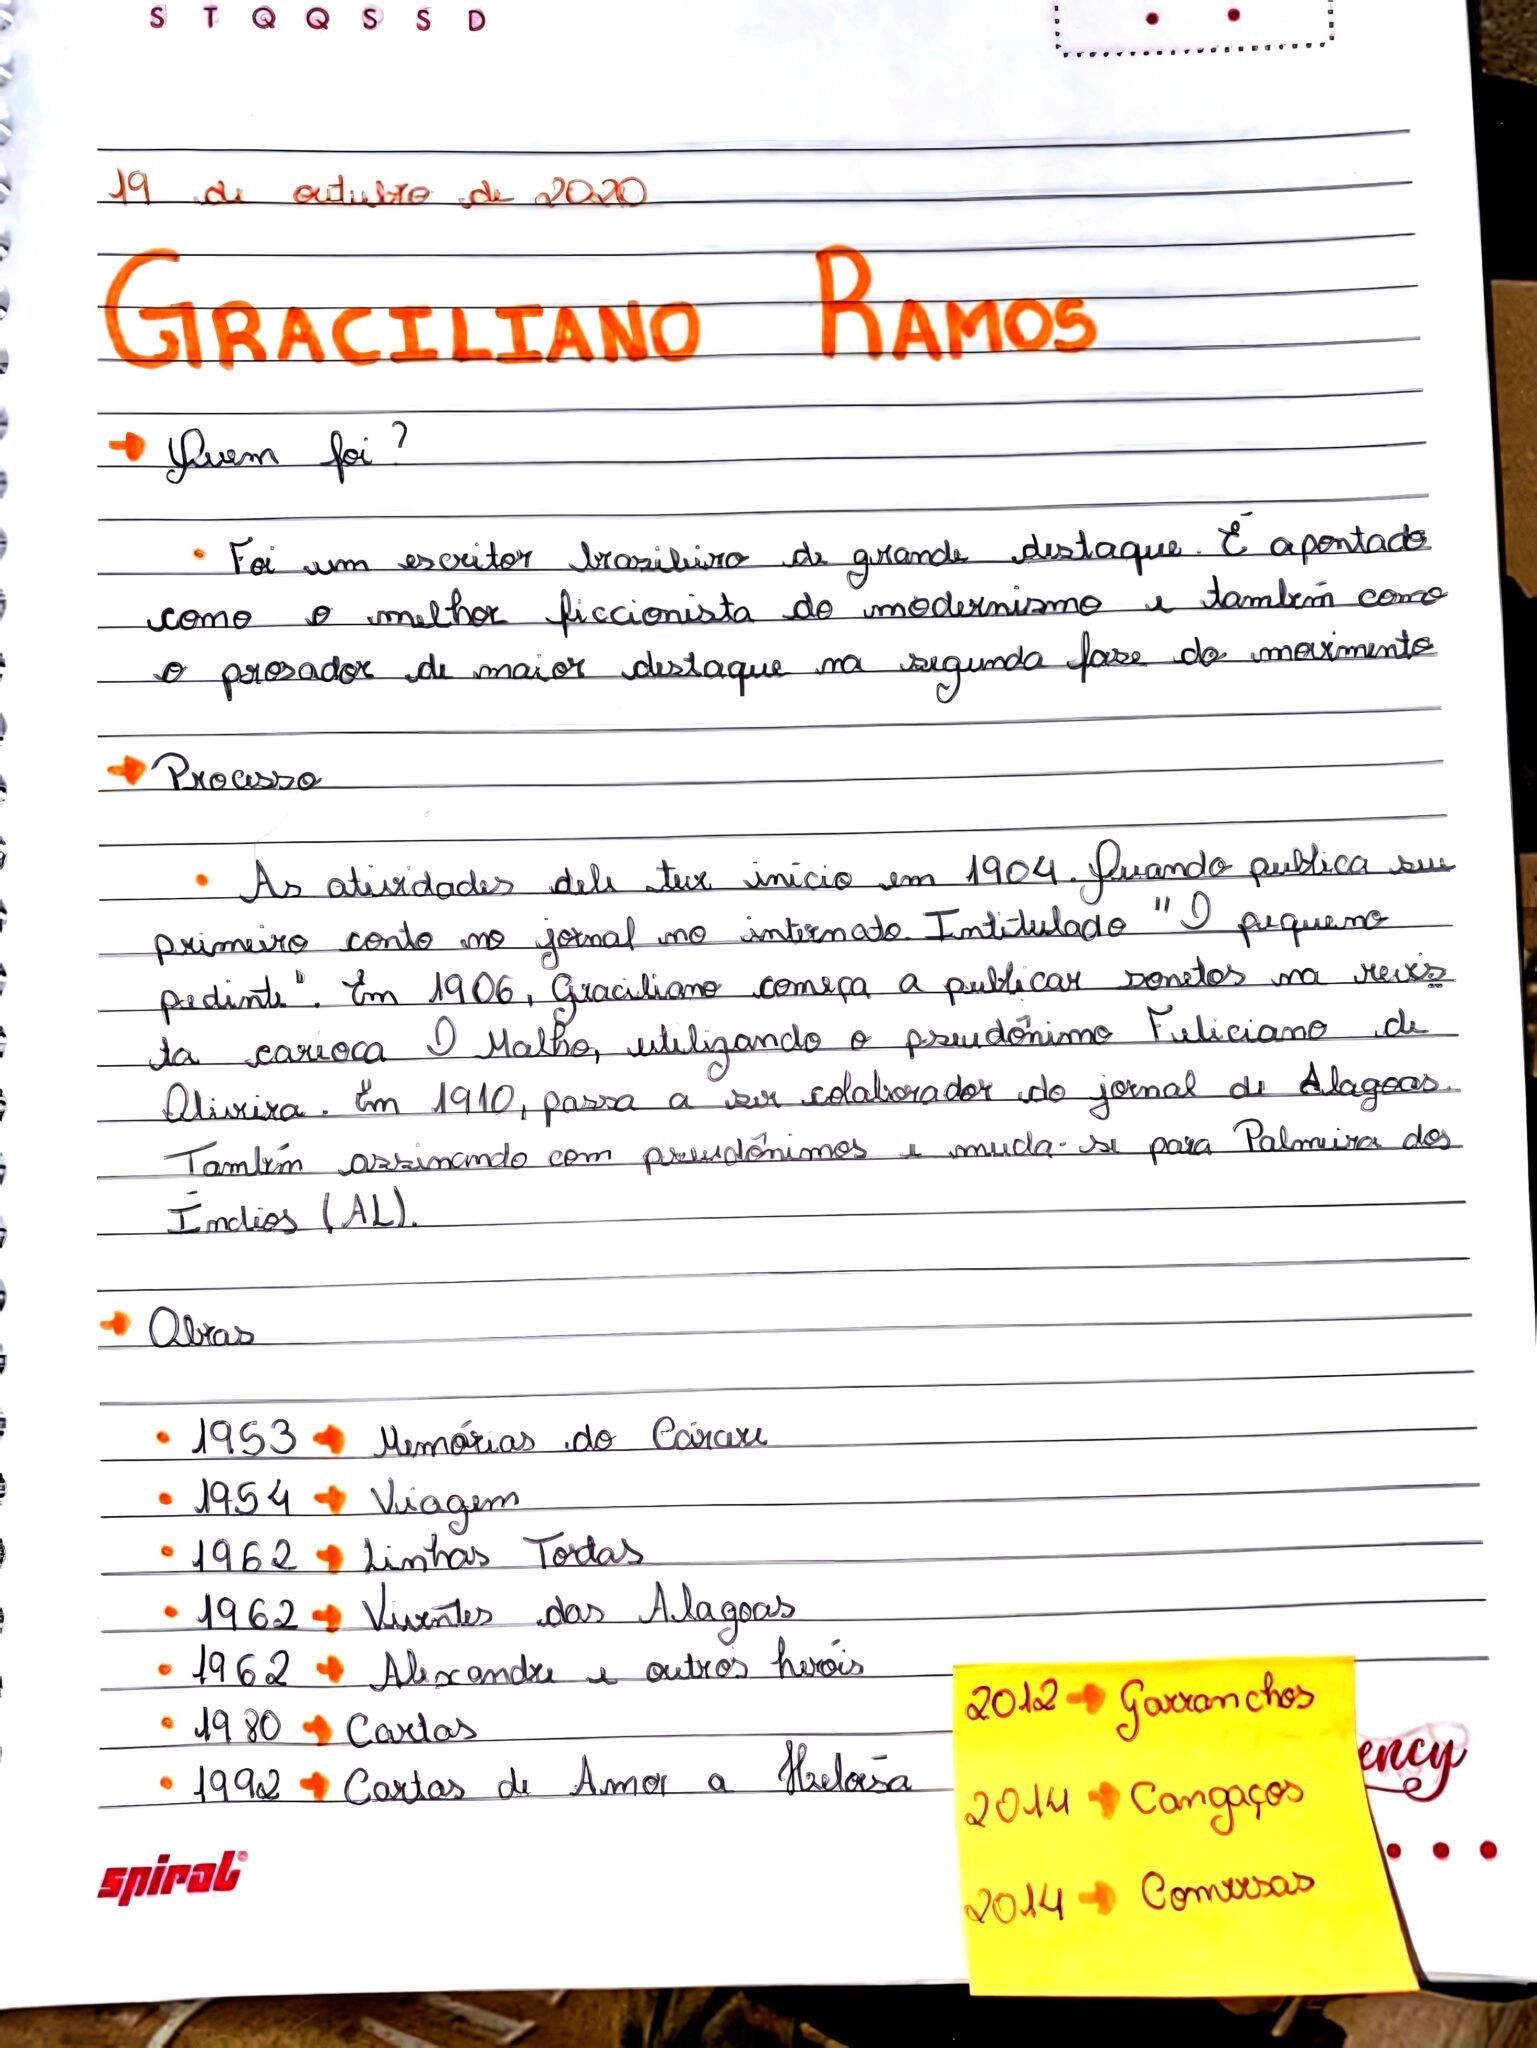 S T Q Q S S D
19 de outubro de 2020
GRACILIANO RAMOS
➔ Quem foi?
• Foi um escritor brasileiro de grande destaque. É apontado
como o melhor ficcionista do modernismo e também como
o prosador de maior destaque na segunda fase do movimento
➔ Processo
• As atividades dele teve início em 1904. Quando publica seu
primeiro conto no jornal no internato. Intitulado "O pequeno
pedinte". Em 1906, Graciliano começa a publicar sonetos na revis
ta carioca O Malho, utilizando o pseudônimo Feliciano de
Oliveira. Em 1910, passa a ser colaborador do jornal de Alagoas.
Também assinando com pseudônimos e muda-se para Palmeira dos
Índios (AL).
➔ Obras
• 1953 ➔ Memórias do Cárcere
• 1954 ➔ Viagem
• 1962 ➔ Linhas Tortas
• 1962 ➔ Viventes das Alagoas
• 1962 ➔ Alexandre e outros heróis
• 1980 ➔ Cartas
• 1992 ➔ Cartas de Amor a Heloísa
2012 ➔ Garranchos
2014 ➔ Cangaços
2014 ➔ Conversas
ency
spiral